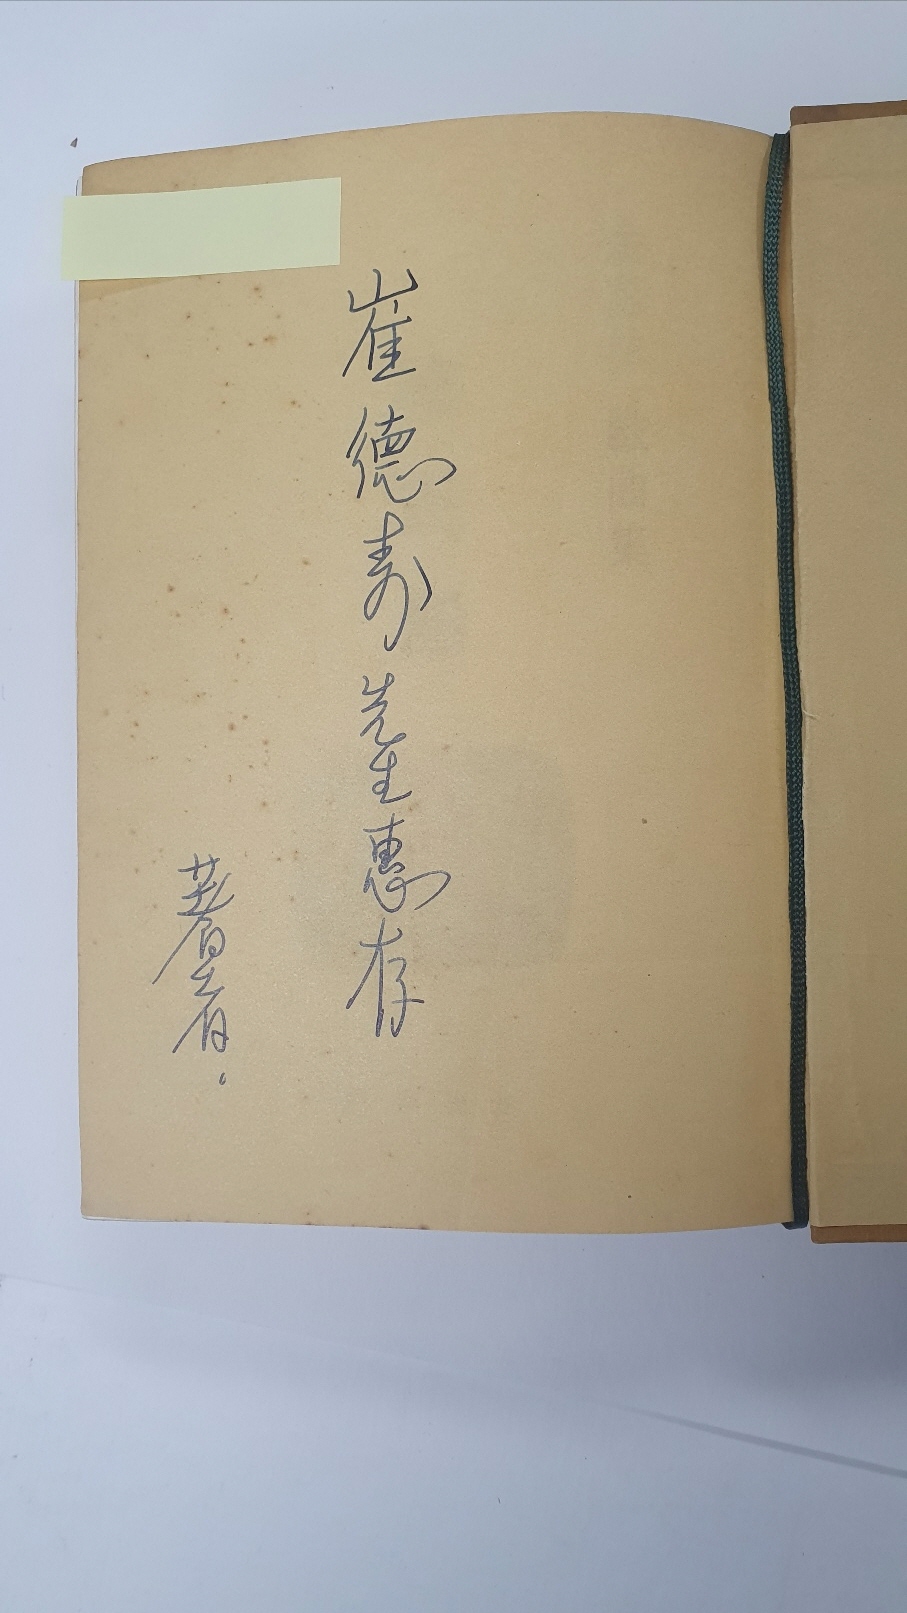 崔德壽先生惠存
著者。